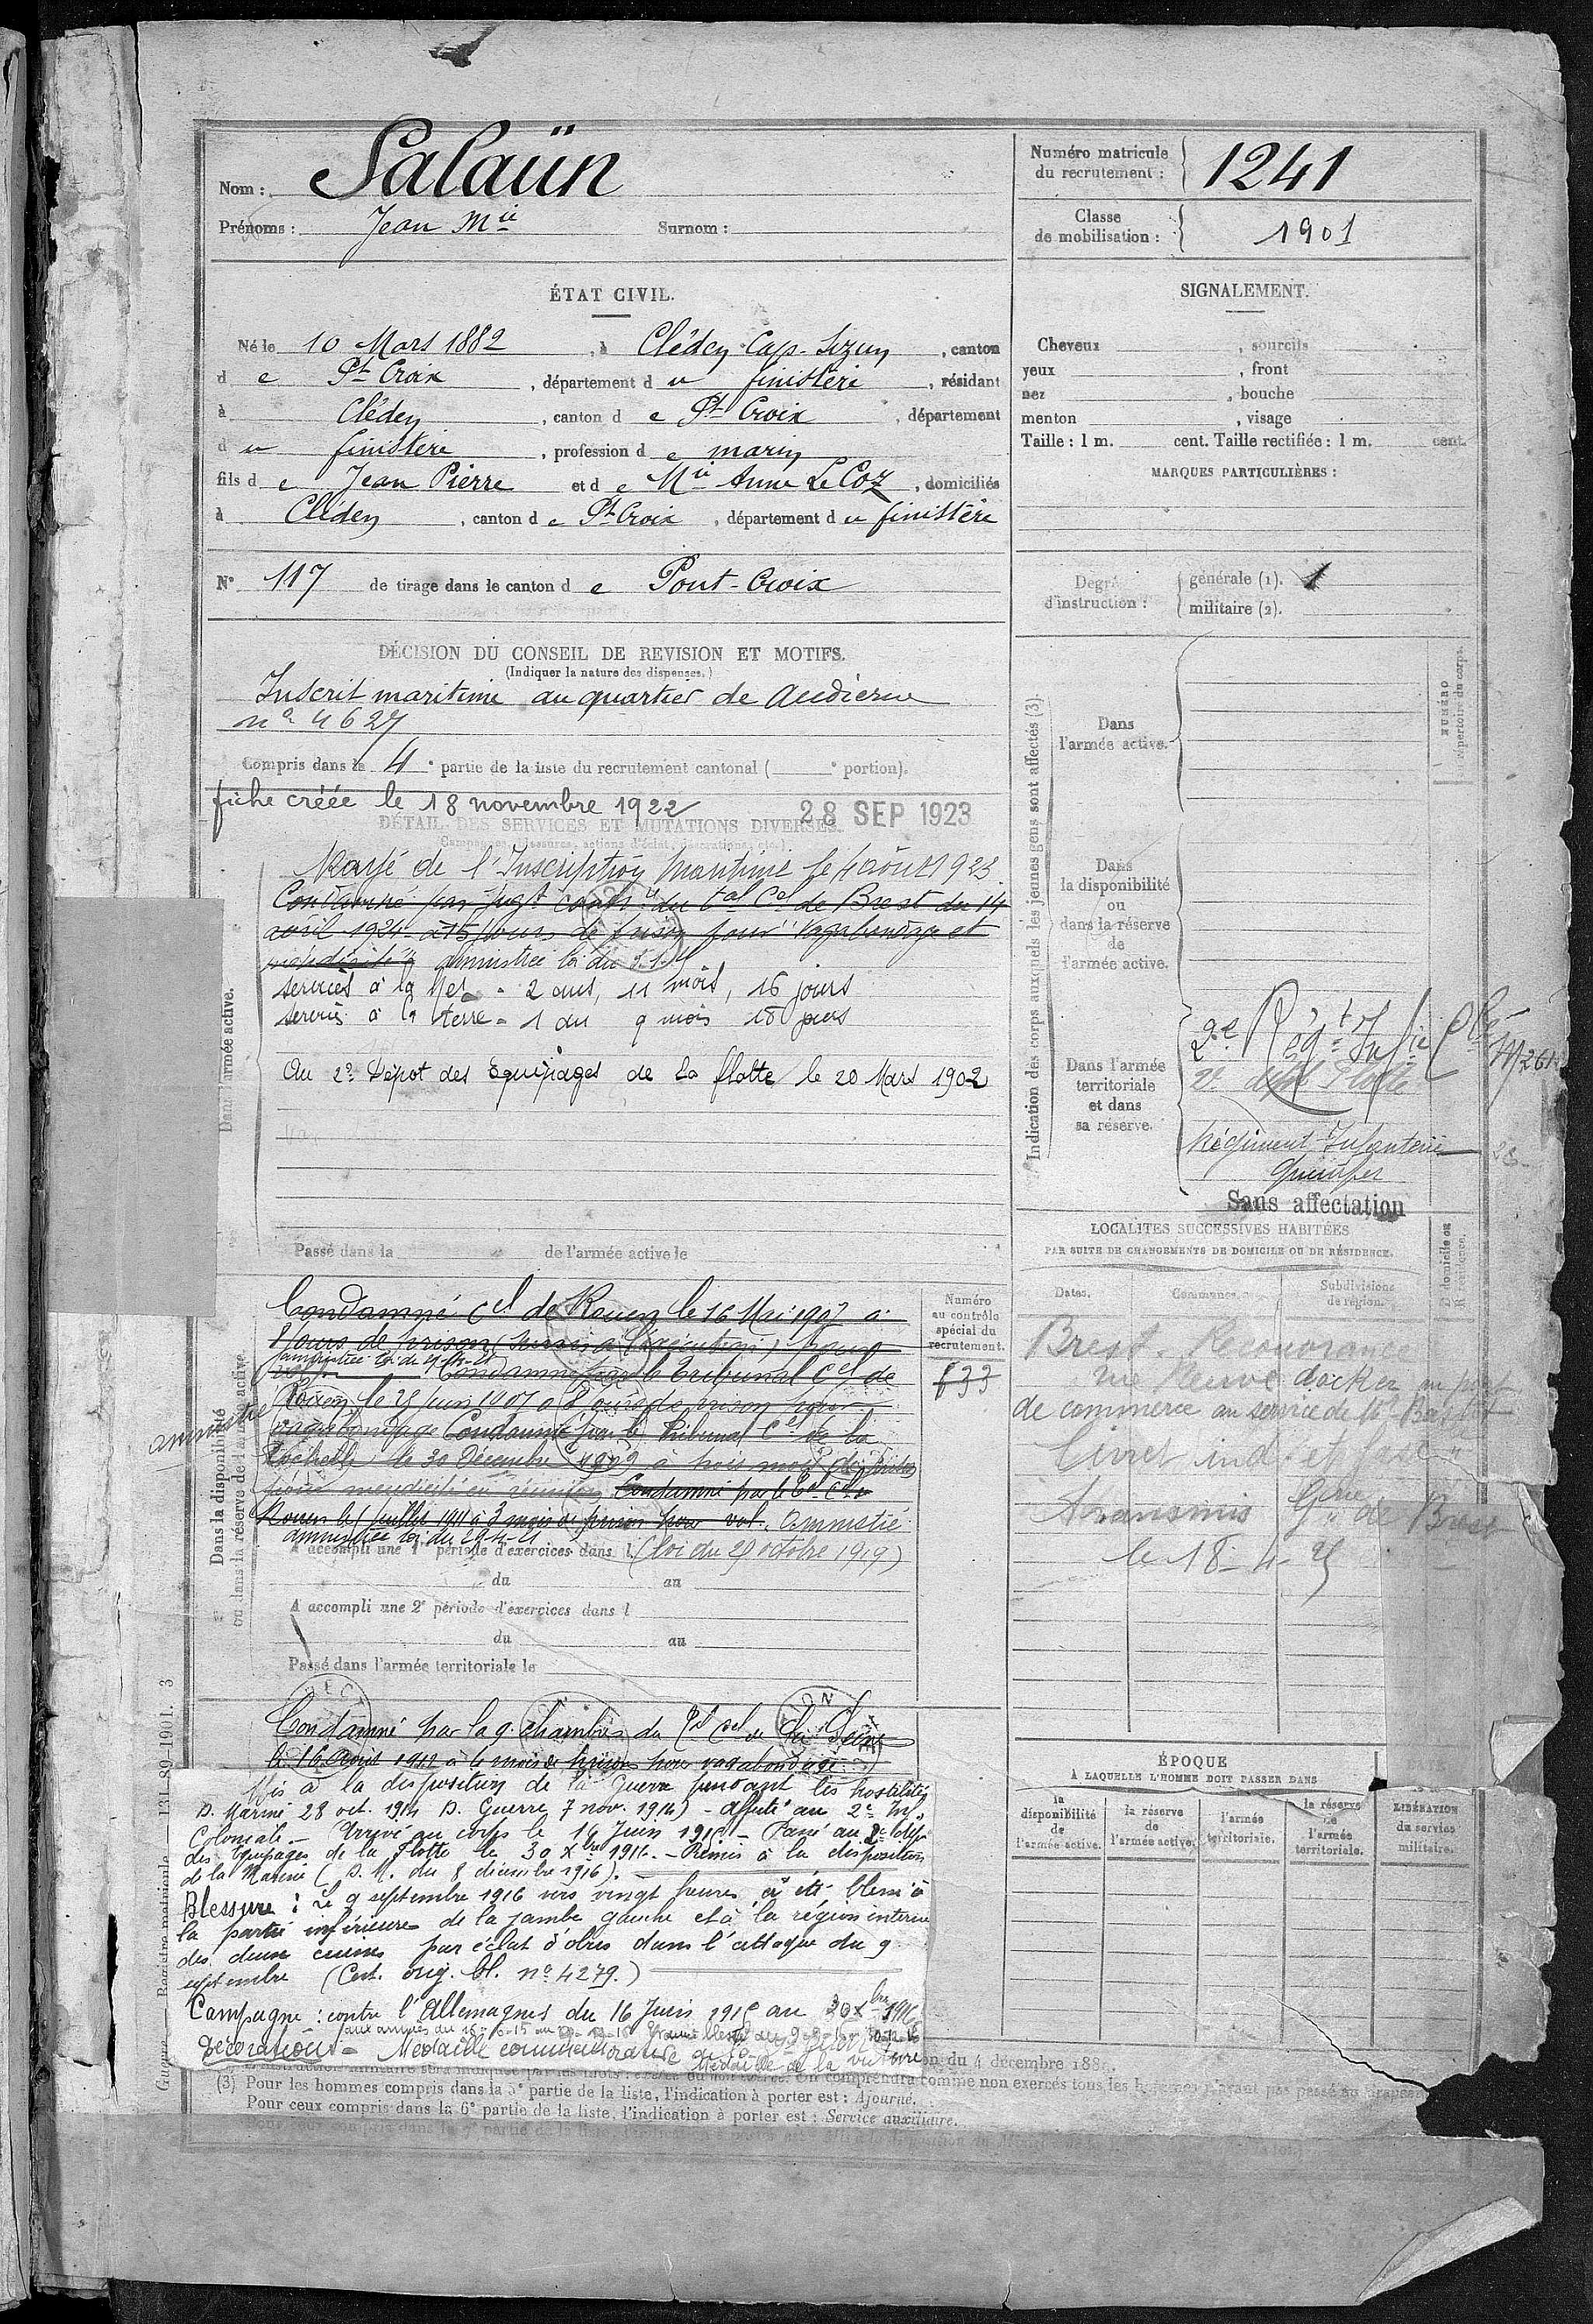 Nom : Salaün
Prénoms : Jean Mie Surnom :
Numéro matricule du recrutement : 1241
Classe de mobilisation : 1901
ÉTAT CIVIL.
Né le 10 Mars 1882, à Cléden Cap-Sizun, canton
de Pt Croix, département du finistère, résidant
à Cléden, canton de Pt Croix, département
du finistère, profession de marin
fils de Jean Pierre et de Mie Anne Le Coz, domiciliés
à Cléden, canton de Pt Croix, département du finistère
N° 117 de tirage dans le canton de Pont-Croix
SIGNALEMENT.
Cheveux , sourcils
yeux , front
nez , bouche
menton , visage
Taille : 1 m. cent. Taille rectifiée : 1 m. cent.
MARQUES PARTICULIÈRES :
Degré d'instruction : générale (1). 1
militaire (2).
DÉCISION DU CONSEIL DE REVISION ET MOTIFS.
(Indiquer la nature des dispenses.)
Inscrit maritime au quartier de Audierne
n° 4627
Compris dans la 4e partie de la liste du recrutement cantonal ( e portion).
fiche créée le 18 novembre 1922
28 SEP 1923
DÉTAIL DES SERVICES ET MUTATIONS DIVERSES.
Rayé de l'Inscription Maritime le 4 août 1923
Condamné par jugt du tal Cel de Brest du 14
avril 1924 à 15 jours de prison pour vagabondage et
mendicité amnistiée loi du
services à la Mer - 2 ans, 11 mois, 16 jours
services à la terre - 1 an 9 mois 18 jours
Au 2e Dépôt des équipages de La flotte le 20 Mars 1902
Dans l'armée active.
Passé dans la de l'armée active le
Indication des corps auxquels les jeunes gens sont affectés (3).
NUMÉRO
répertoire du corps.
Dans l'armée active.
Dans la disponibilité ou dans la réserve de l'armée active.
Dans l'armée territoriale et dans sa réserve.
2e Régt Infie Cle
2e dépôt Flotte
Régiment Infanterie
Quimper
Sans affectation
LOCALITÉS SUCCESSIVES HABITÉES
PAR SUITE DE CHANGEMENTS DE DOMICILE OU DE RÉSIDENCE.
Dates. Communes. Subdivisions de région. D domicile ou R résidence.
Brest Recouvrance
docker au port
de commerce au service de
Livret ind. et
Transmis Gerie de Brest
le 18-4-25
Dans la disponibilité
ou dans la réserve de l'armée active
amnistié
Numéro au contrôle spécial du recrutement.
633
Condamné Cel de Rouen le 16 Mai 1907 à
8 jours de prison (sursis à l'exécution) pour
amnistiée loi du 29-4-21 Condamné par le tribunal Cel de
Rouen le 25 Juin 1907 à 8 jours de prison pour
vagabondage Condamné par le Tribunal Cel de la
Rochelle, le 30 Décembre 1909 à trois mois de prison
pour mendicité en réunion Condamné par le Tal Cel de
Rouen le 1 Juillet 1911 à 3 mois de prison pour vol. Amnistié
amnistiée loi du 29-4-21
A accompli une 1re période d'exercices dans l (loi du 29 octobre 1919)
du au
A accompli une 2e période d'exercices dans l
du au
Passé dans l'armée territoriale le
Condamné par la 9e chambre du Tal Cel de la Seine
le 16 Août 1912 à 4 mois de prison pour vagabondage
Mis à la disposition de la Guerre pendant les hostilités
D. Marine 28 oct. 1914 D. Guerre 7 nov. 1914) - Affecté au 2e Inf.
Coloniale - Arrivé au corps le 16 Juin 1915 - Passé au 2e Dépôt
des équipages de la Flotte le 30 Xbre 1916. - Remis à la disposition
de la Marine (D.M. du 8 décembre 1916).
Blessure : Le 9 septembre 1916 vers vingt heures, a été blessé à
la partie inférieure de la jambe gauche et à la région interne
des deux cuisses par éclat d'obus dans l'attaque du 9
septembre (Cert. orig. bl. n° 4279.)
Campagne : contre l'Allemagne du 16 Juin 1915 au 30 Xbre 1916
Décorations - Médaille commémorative
Médaille de la victoire
ÉPOQUE
À LAQUELLE L'HOMME DOIT PASSER DANS
la disponibilité de l'armée active.
la réserve de l'armée active.
l'armée territoriale.
la réserve de l'armée territoriale.
LIBÉRATION du service militaire.
(3) Pour les hommes compris dans la 5e partie de la liste, l'indication à porter est : Ajourné.
Pour ceux compris dans la 6e partie de la liste, l'indication à porter est : Service auxiliaire.